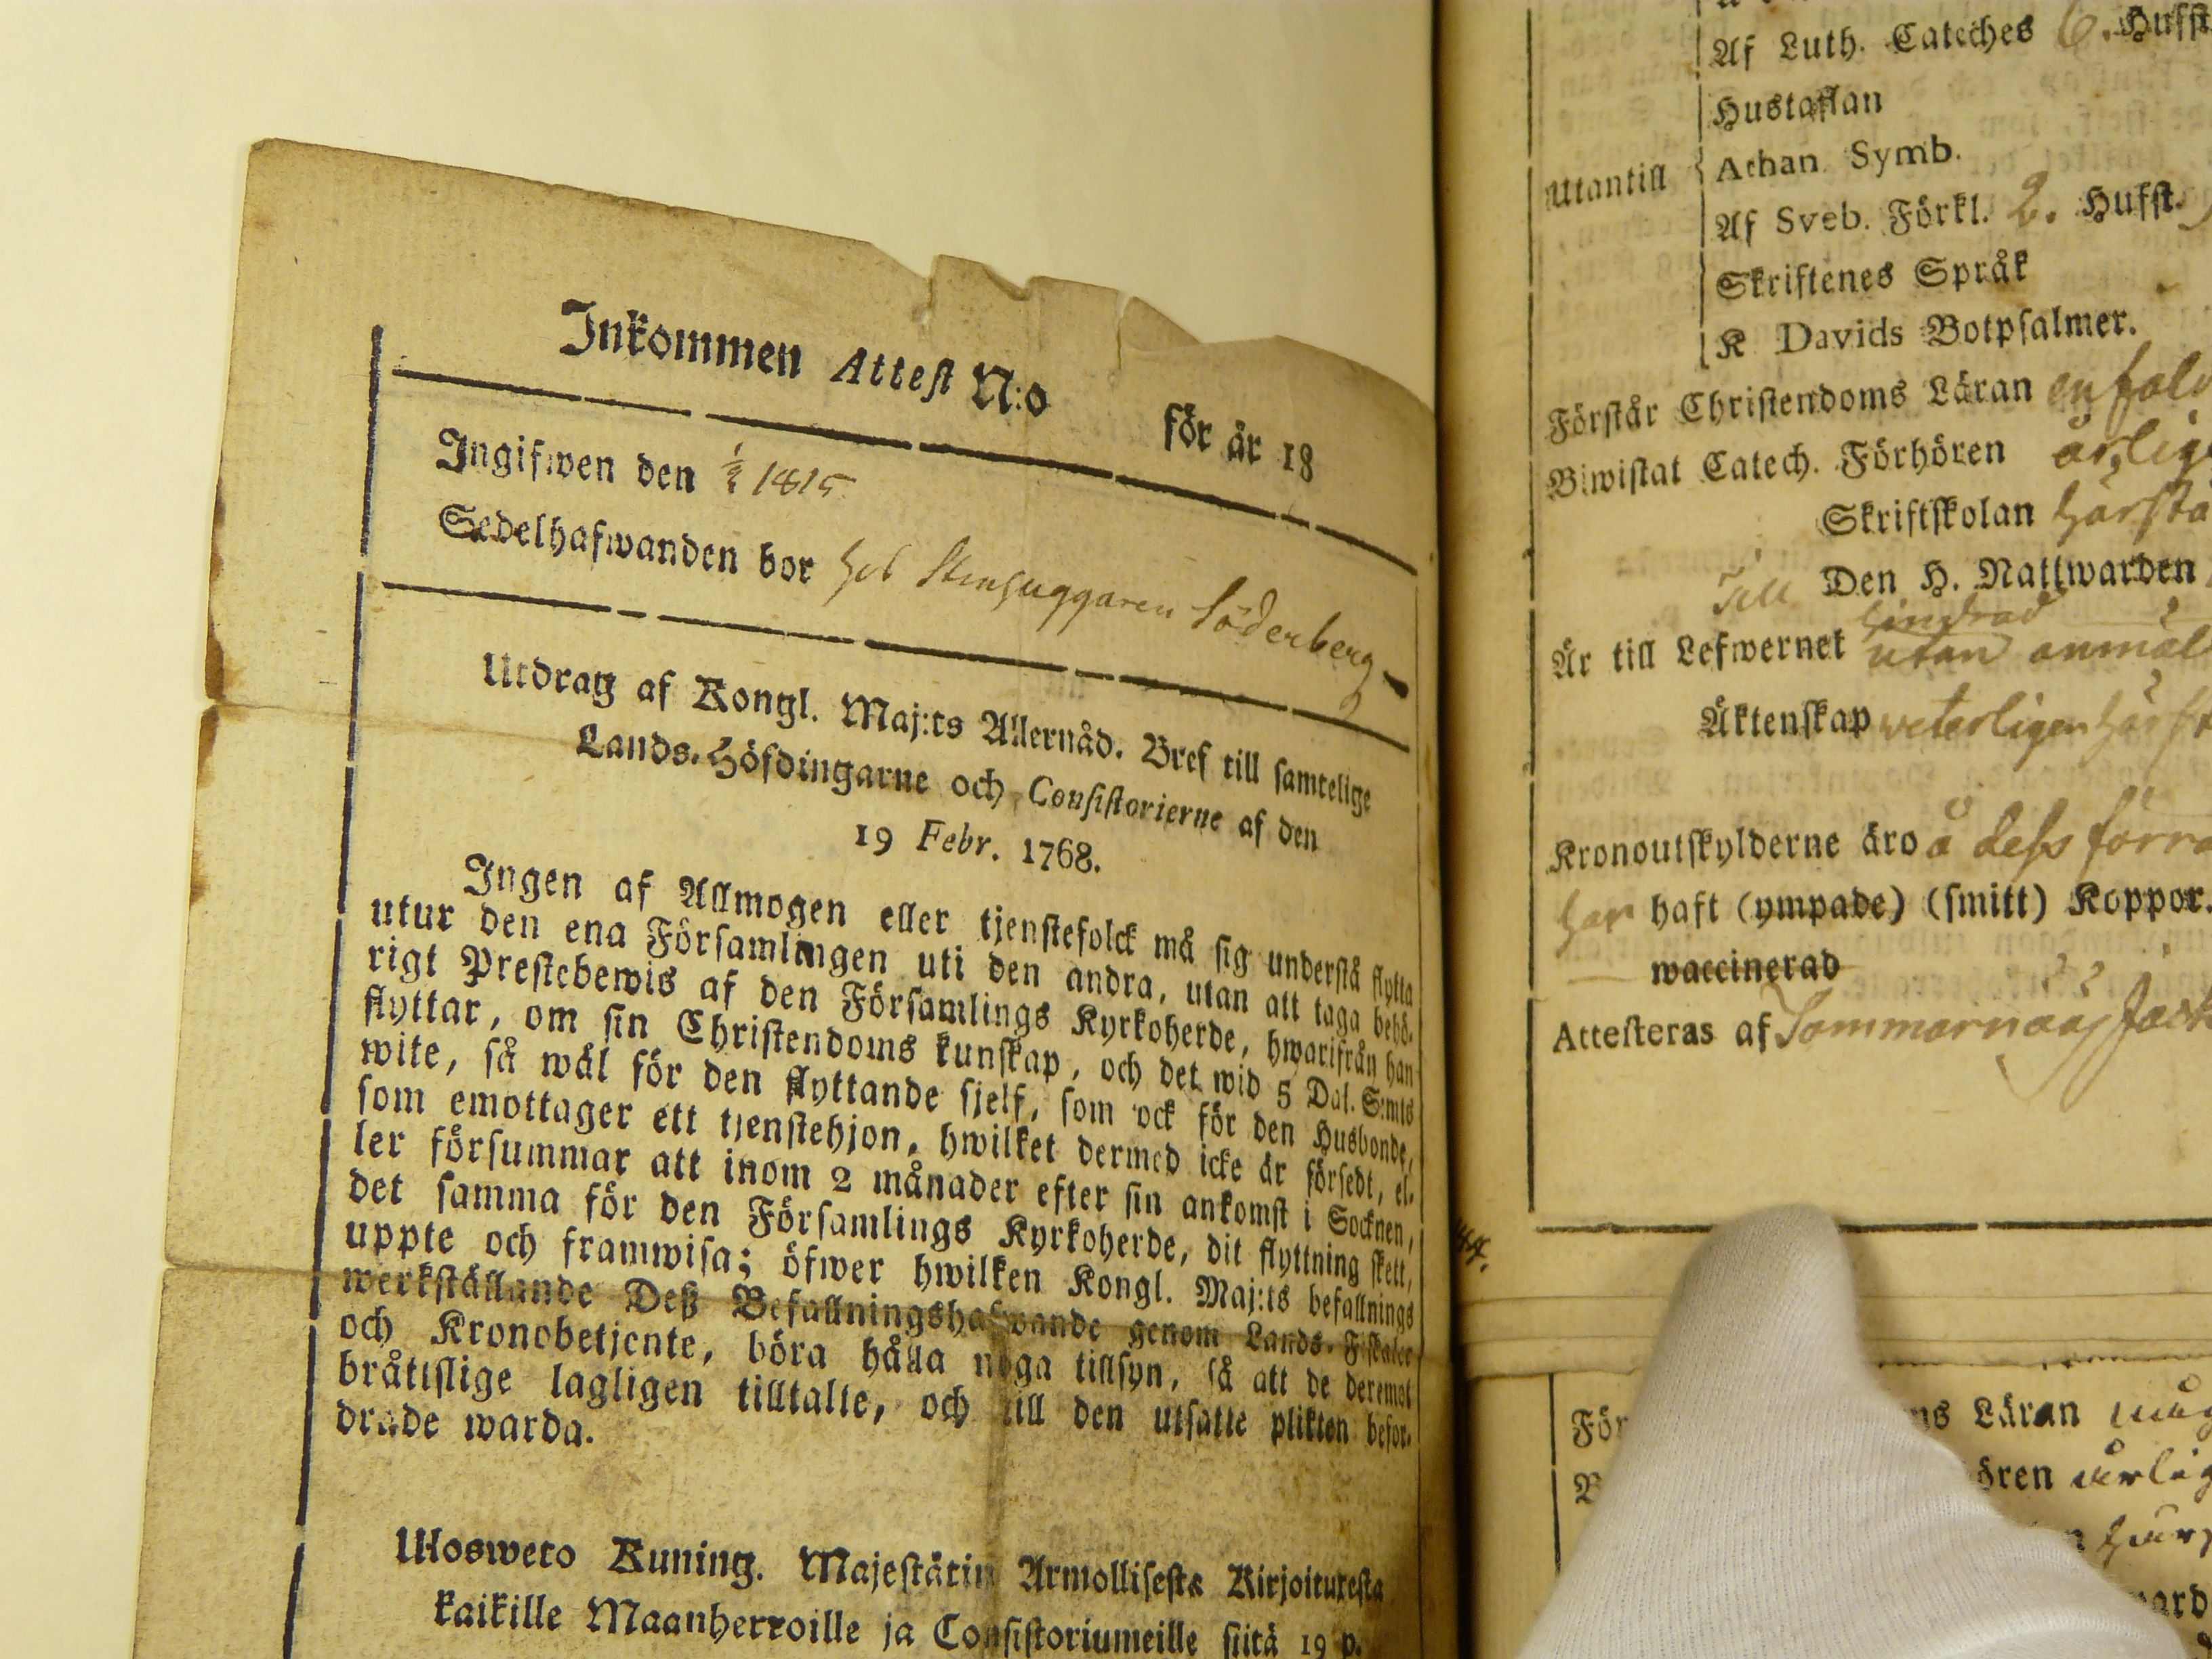 Inkommen Attest N:o för år 18
Ingifwen den 1/2 1815
Sedelhafwanden bor hos Stenhuggaren Söderberg
Utdrag af Kongl. Maj:ts Allernåd. Bref till samtelige
Lands-Höfdingarne och Consistorierne af den
19 Febr. 1768.
Ingen af Allmogen eller tjenstefolck må sig understå flytta
utur den ena Församlingen uti den andra, utan att taga behö-
rigt Prestebewis af den Församlings Kyrkoherde, hwarifrån han
flyttar, om sin Christendoms kunskap, och det wid 5 Dal. S:mts
wite, så wäl för den flyttande sjelf, som ock för den Husbonde,
som emottager ett tjenstehjon, hwilket dermed icke är försedt, el-
ler försummar att inom 2 månader efter sin ankomst i Socknen,
det samma för den Församlings Kyrkoherde, dit flyttning skett,
uppte och framwisa; öfwer hwilken Kongl. Maj:ts befallnings
werkställande Deß Befallningshafwande genom Lands-Fiskaler
och Kronobetjente, böra hålla noga tillsyn, så att de deremot
bråtislige lagligen tilltalte, och till den utsatte plikten befor-
drade warda.
Ulosweto Kuning. Majestätin Armollisesta Kirjoituxesta
kaikille Maanherroille ja Consistoriumeille siitä 19 p.
Af Luth. Cateches 6. Hufst
Hustaflan
Utantill Athan. Symb.
Af Sveb. Förkl. 2. Hufst.
Skriftenes Språk
K Davids Botpsalmer.
Förstår Christendoms Läran enfal
Biwistat Catech. Förhören årlig
Skriftskolan härstä
Till Den H. Nattwarden
hindrad
Är till Lefwernet utan anmäl
Äktenskap veterligen här
Kronoutskylderne äro å dess förra
har haft (ympade) (smitt) Koppor.
waccinerad
Attesteras af Sommarnäs
För ns Läran
B ören årlig